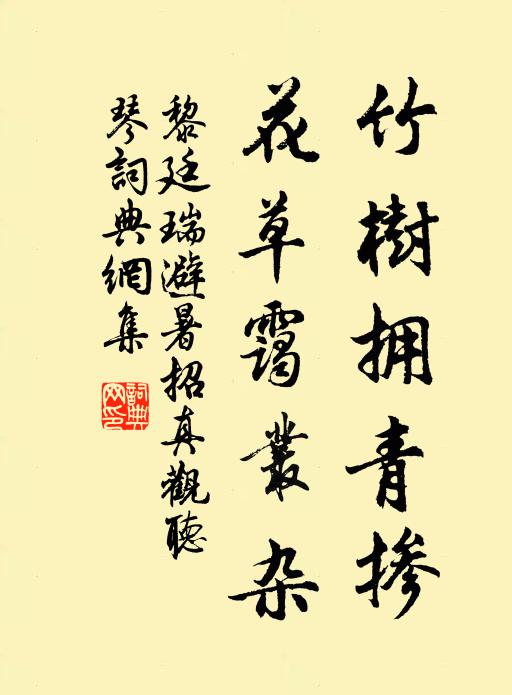 竹樹拥青掺
花草霭叢杂
黎廷瑞避暑招真觀聽
琴詞典網集
詞典網印